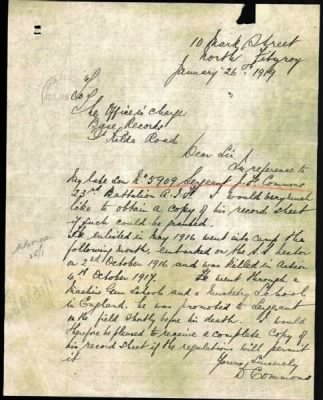 10 Mark Street
North Fitzroy
January 26th 1919
To
The Officer in charge
Base Records
St Kilda Road
Dear Sir
In reference to
my late son No 5909 Sergeant Commons
23rd Battalion A.I.F. I would very much
like to obtain a copy of his record sheet
if such could be granted.
He enlisted in May 1916 went into camp the
following month, embarked on the
on 3rd October 1916 and was Killed in Action
4th October 1917. He went through a
Machine Gun School and a Musketry School
in England, he was promoted to Sergeant
in the field shortly before his death. I would
therefore be pleased to receive a complete copy of
his record sheet if the regulations will permit
it
Yours Sincerely
D Commons